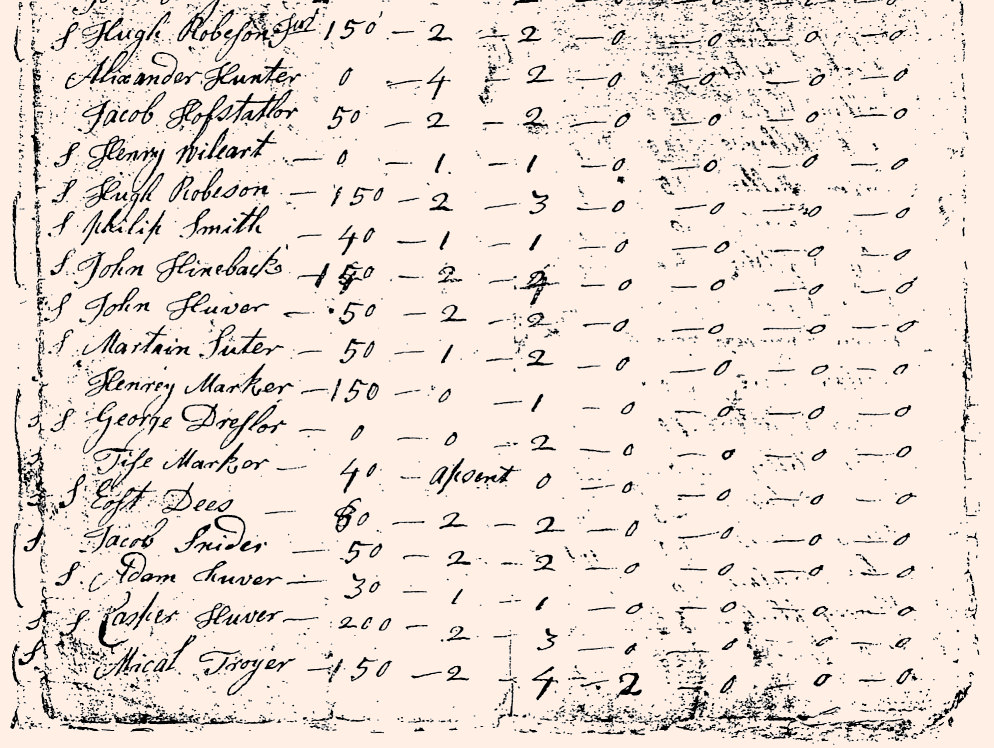 S Hugh Robeson Jur 150 — 2 — 2 — 0 — 0 — 0 — 0
Alixander Hunter 0 — 4 — 2 — 0 — 0 — 0 — 0
Jacob Hofstatlor 50 — 2 — 2 — 0 — 0 — 0 — 0
S Henry Wileart — 0 — 1 — 1 — 0 — 0 — 0 — 0
S Hugh Robeson — 150 — 2 — 3 — 0 — 0 — 0 — 0
S philip Smith — 40 — 1 — 1 — 0 — 0 — 0 — 0
S John Hineback — 150 — 2 — 0 — 0 — 0 — 0
S John Huver — 50 — 2 — 2 — 0 — 0 — 0 — 0
S Martain Suter — 50 — 1 — 2 — 0 — 0 — 0 — 0
Henrey Marker — 150 — 0 — 1 — 0 — 0 — 0 — 0
S George Dreslor — 0 — 0 — 2 — 0 — 0 — 0 — 0
Marker — 40 — Absent 0 — 0 — 0 — 0 — 0
S Eost Dees — 60 — 2 — 2 — 0 — 0 — 0 — 0
S Jacob Snider — 50 — 2 — 2 — 0 — 0 — 0 — 0
S Adam huver — 30 — 1 — 1 — 0 — 0 — 0 — 0
S S Casper Huver — 200 — 2 — 3 — 0 — 0 — 0 — 0
S Mical Troyer — 150 — 2 — 4 — 2 — 0 — 0 — 0